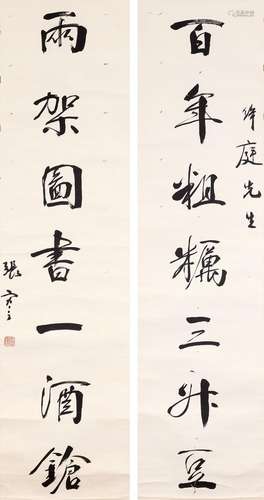 庭先生
百年粗糲三升豆
兩架圖書一酒鎗
張謇